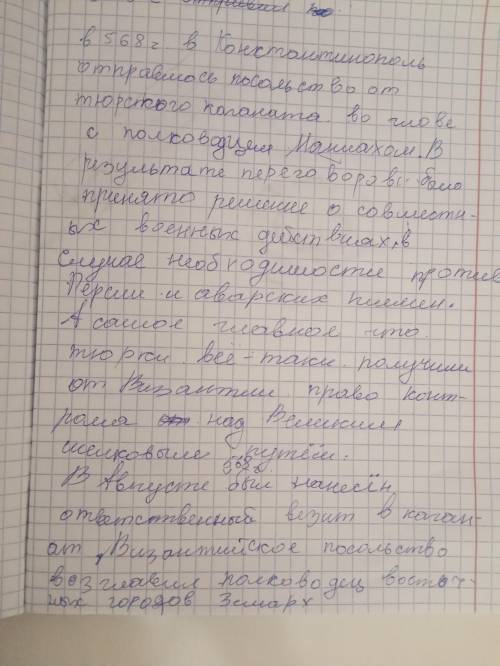 в 568 г в Константинополь
отправлось посольство от
тюрского каганата во главе
с полководцем Маниахом. В
результате переговоров было
принято решение о совместн-
ых военных действиях, в
случае необходимости против
Персии и аварских племен.
А самое главное что
тюрки всё-таки получили
от Византии право конт-
роля над Великим
шелковым путём.
568г.
В Августе был нанесён
ответственный визит в каган-
ат, Византийское посольство
возглавил полководец восточ-
ных городов Земарх